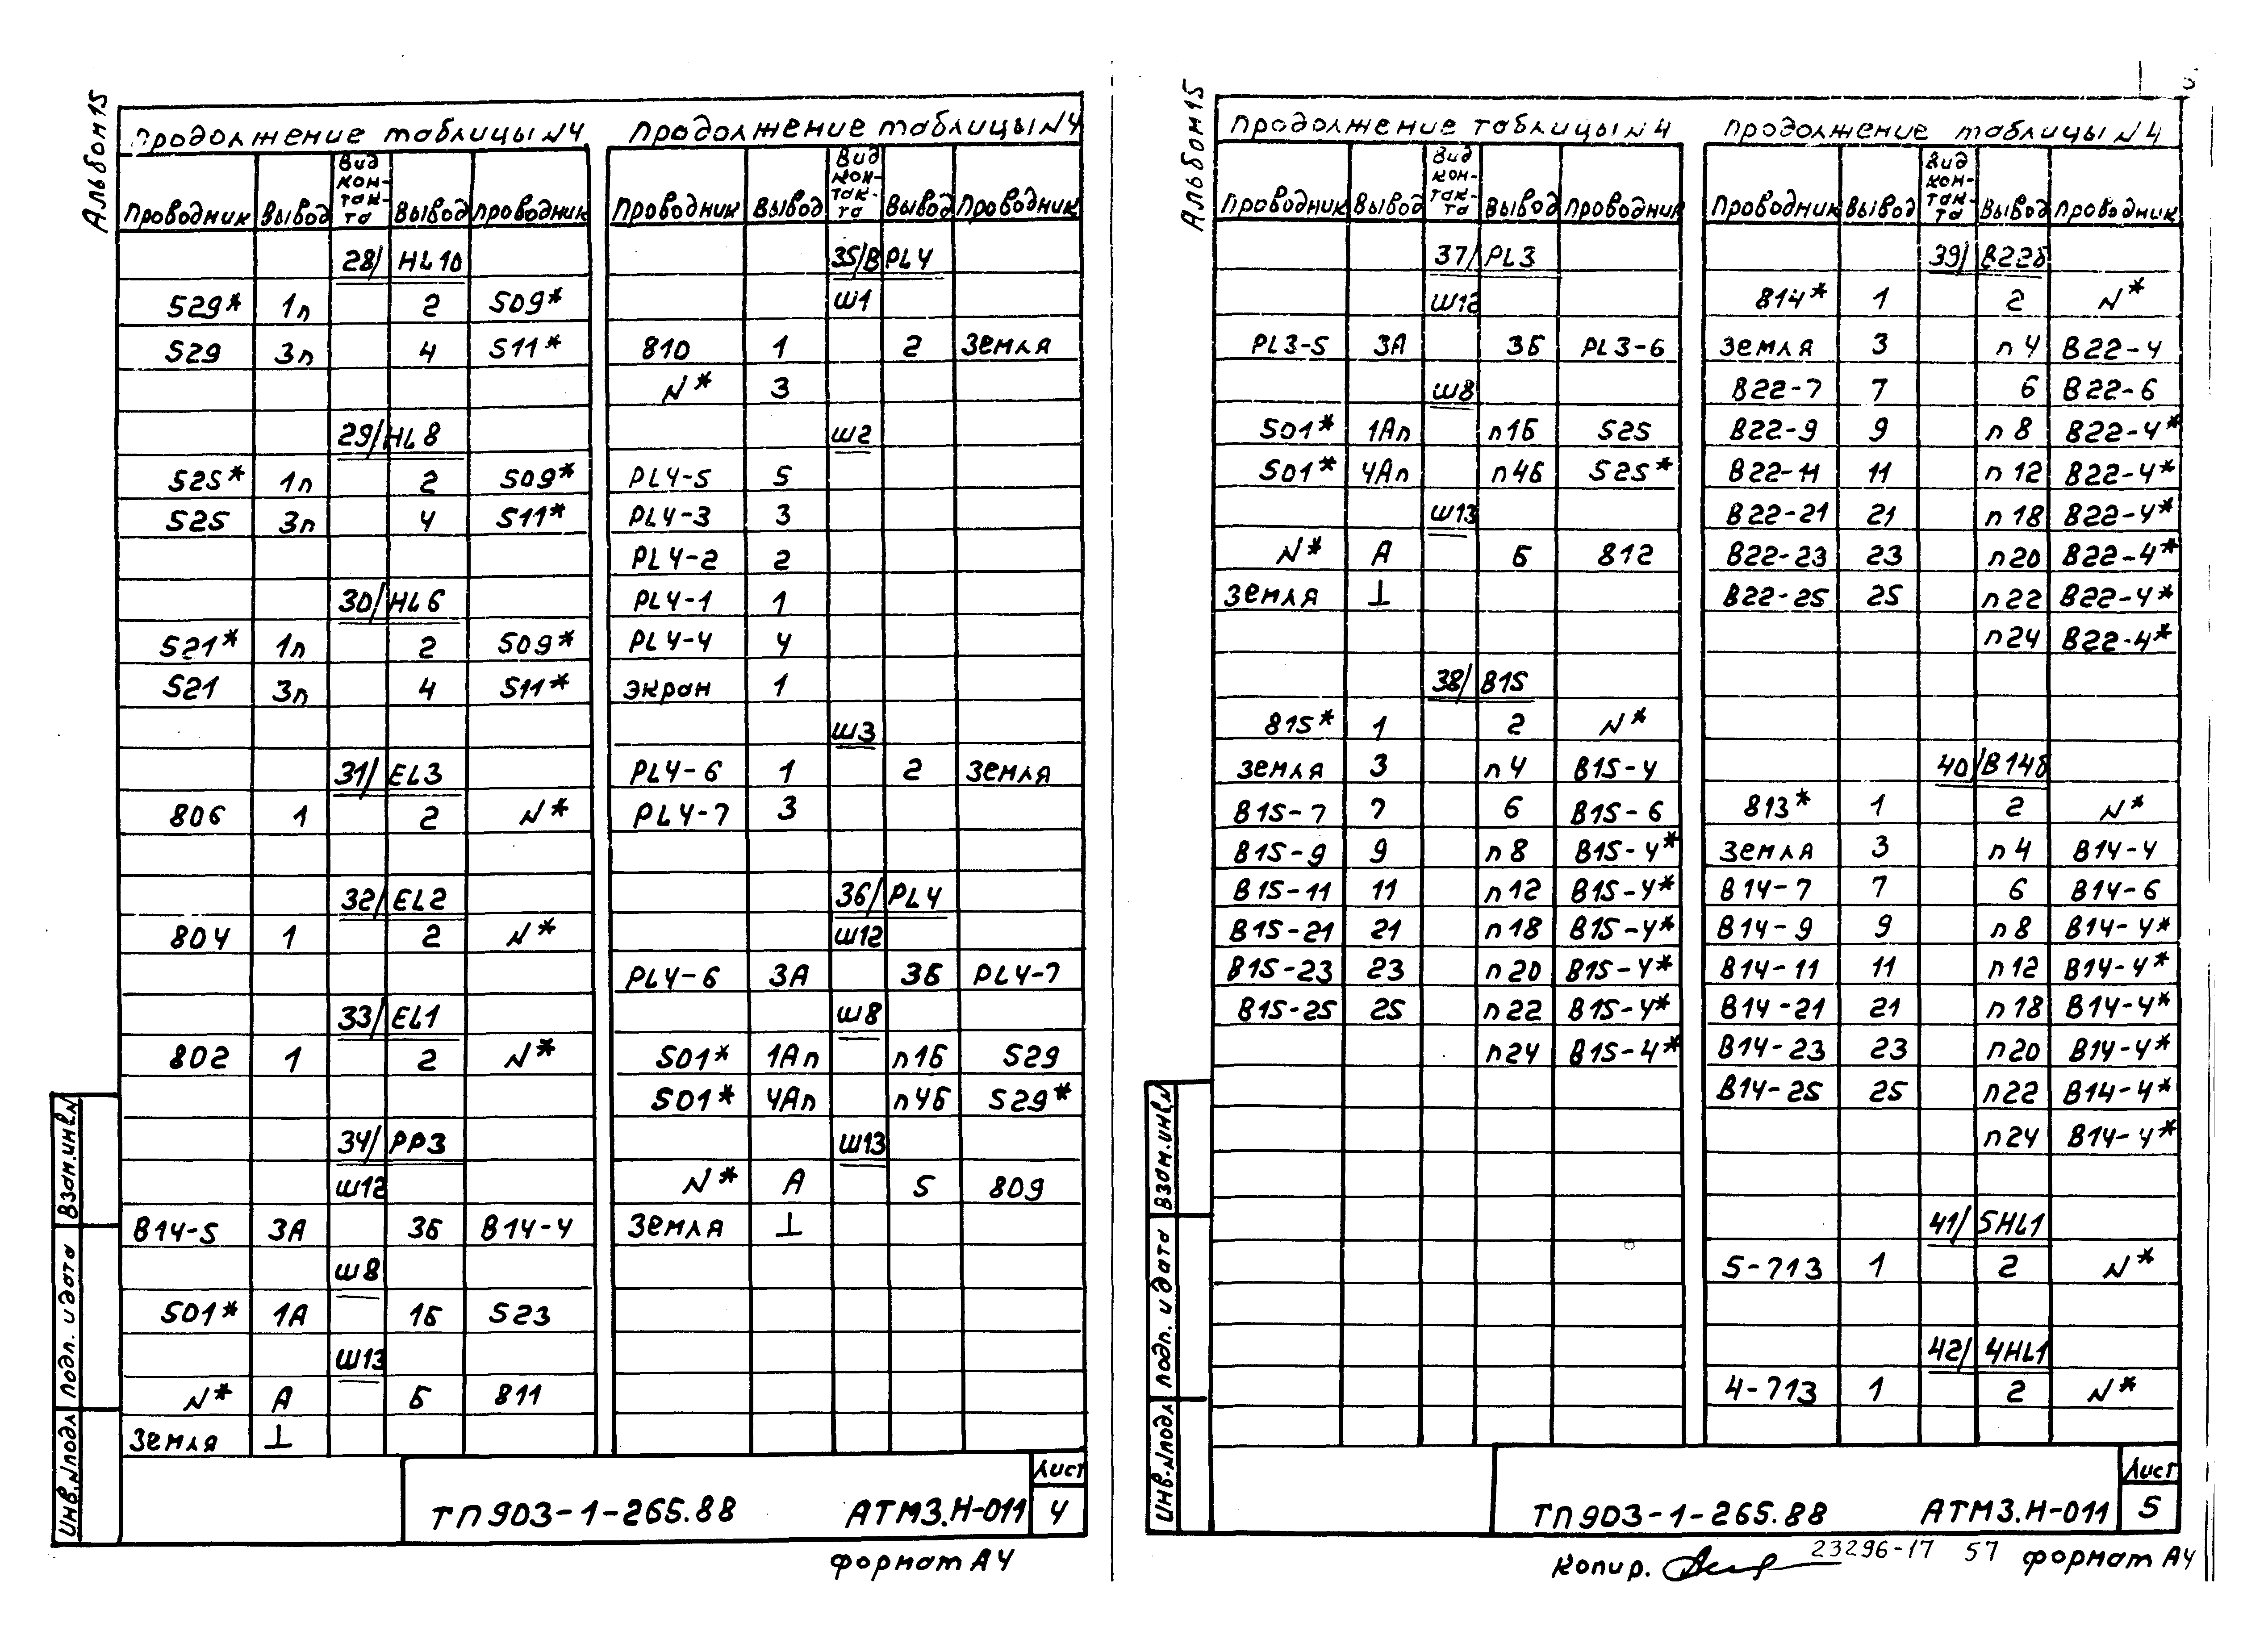 Альбом 15
Продолжение таблицы N4
Проводник Вывод Вид кон-так-та Вывод Проводник
28/ HL10
529* 1п 2 509*
529 3п 4 511*
29/ HL8
525* 1п 2 509*
525 3п 4 511*
30/ HL6
521* 1п 2 509*
521 3п 4 511*
31/ EL3
806 1 2 N*
32/ EL2
804 1 2 N*
33/ EL1
802 1 2 N*
34/ PP3
Ш12
В14-5 3А 3Б В14-4
Ш8
501* 1А 1Б 523
Ш13
N* А Б 811
Земля ⊥
Продолжение таблицы N4
Проводник Вывод Вид кон-так-та Вывод Проводник
35/В PL4
Ш1
810 1 2 Земля
N* 3
Ш2
PL4-5 5
PL4-3 3
PL4-2 2
PL4-1 1
PL4-4 4
Экран 1
Ш3
PL4-6 1 2 Земля
PL4-7 3
36/ PL4
Ш12
PL4-6 3А 3Б PL4-7
Ш8
501* 1Ап п1Б 529
501* 4Ап п4Б 529*
Ш13
N* А Б 809
Земля ⊥
Взам.инв.N
Подп. и дата
Инв.Nподл
ТП903-1-265.88 АТМ3.Н-011
Лист
4
формат А4
Альбом 15
Продолжение таблицы N4
Проводник Вывод Вид кон-так-та Вывод Проводник
37/ PL3
Ш12
PL3-5 3А 3Б PL3-6
Ш8
501* 1Ап п1Б 525
501* 4Ап п4Б 525*
Ш13
N* А Б 812
Земля ⊥
38/ В15
815* 1 2 N*
Земля 3 п4 В15-4
В15-7 7 6 В15-6
В15-9 9 п8 В15-4*
В15-11 11 п12 В15-4*
В15-21 21 п18 В15-4*
В15-23 23 п20 В15-4*
В15-25 25 п22 В15-4*
п24 В15-4*
Продолжение таблицы N4
Проводник Вывод Вид кон-так-та Вывод Проводник
39/ В22б
814* 1 2 N*
Земля 3 п4 В22-4
В22-7 7 6 В22-6
В22-9 9 п8 В22-4*
В22-11 11 п12 В22-4*
В22-21 21 п18 В22-4*
В22-23 23 п20 В22-4*
В22-25 25 п22 В22-4*
п24 В22-4*
40/ В14б
813* 1 2 N*
Земля 3 п4 В14-4
В14-7 7 6 В14-6
В14-9 9 п8 В14-4*
В14-11 11 п12 В14-4*
В14-21 21 п18 В14-4*
В14-23 23 п20 В14-4*
В14-25 25 п22 В14-4*
п24 В14-4*
41/ 5HL1
5-713 1 2 N*
42/ 4HL1
4-713 1 2 N*
Взам.инв.N
Подп. и дата
Инв.Nподл
ТП903-1-265.88 АТМ3.Н-011
Лист
5
Копир. 23296-17 57 формат А4